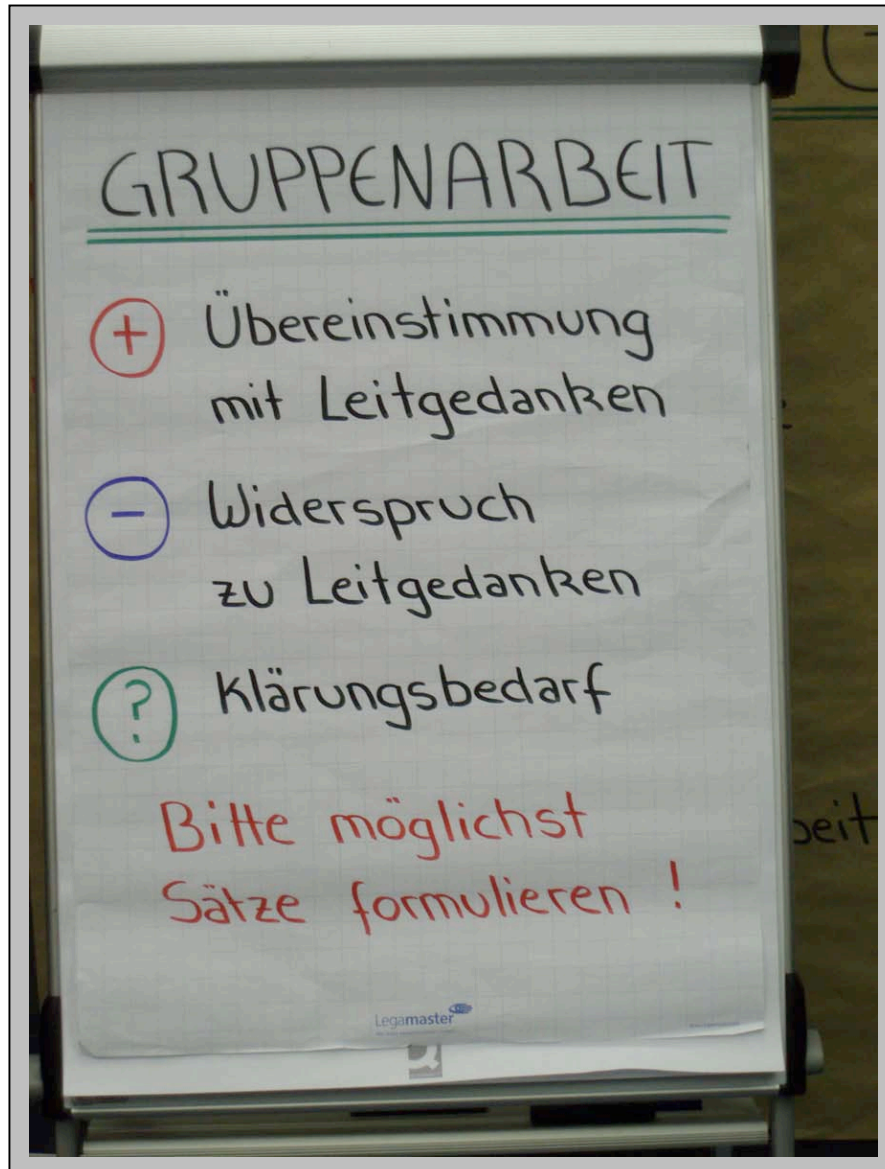 GRUPPENARBEIT
+ Übereinstimmung
mit Leitgedanken
- Widerspruch
zu Leitgedanken
? Klärungsbedarf
Bitte möglichst
Sätze formulieren !
Legamaster
beit